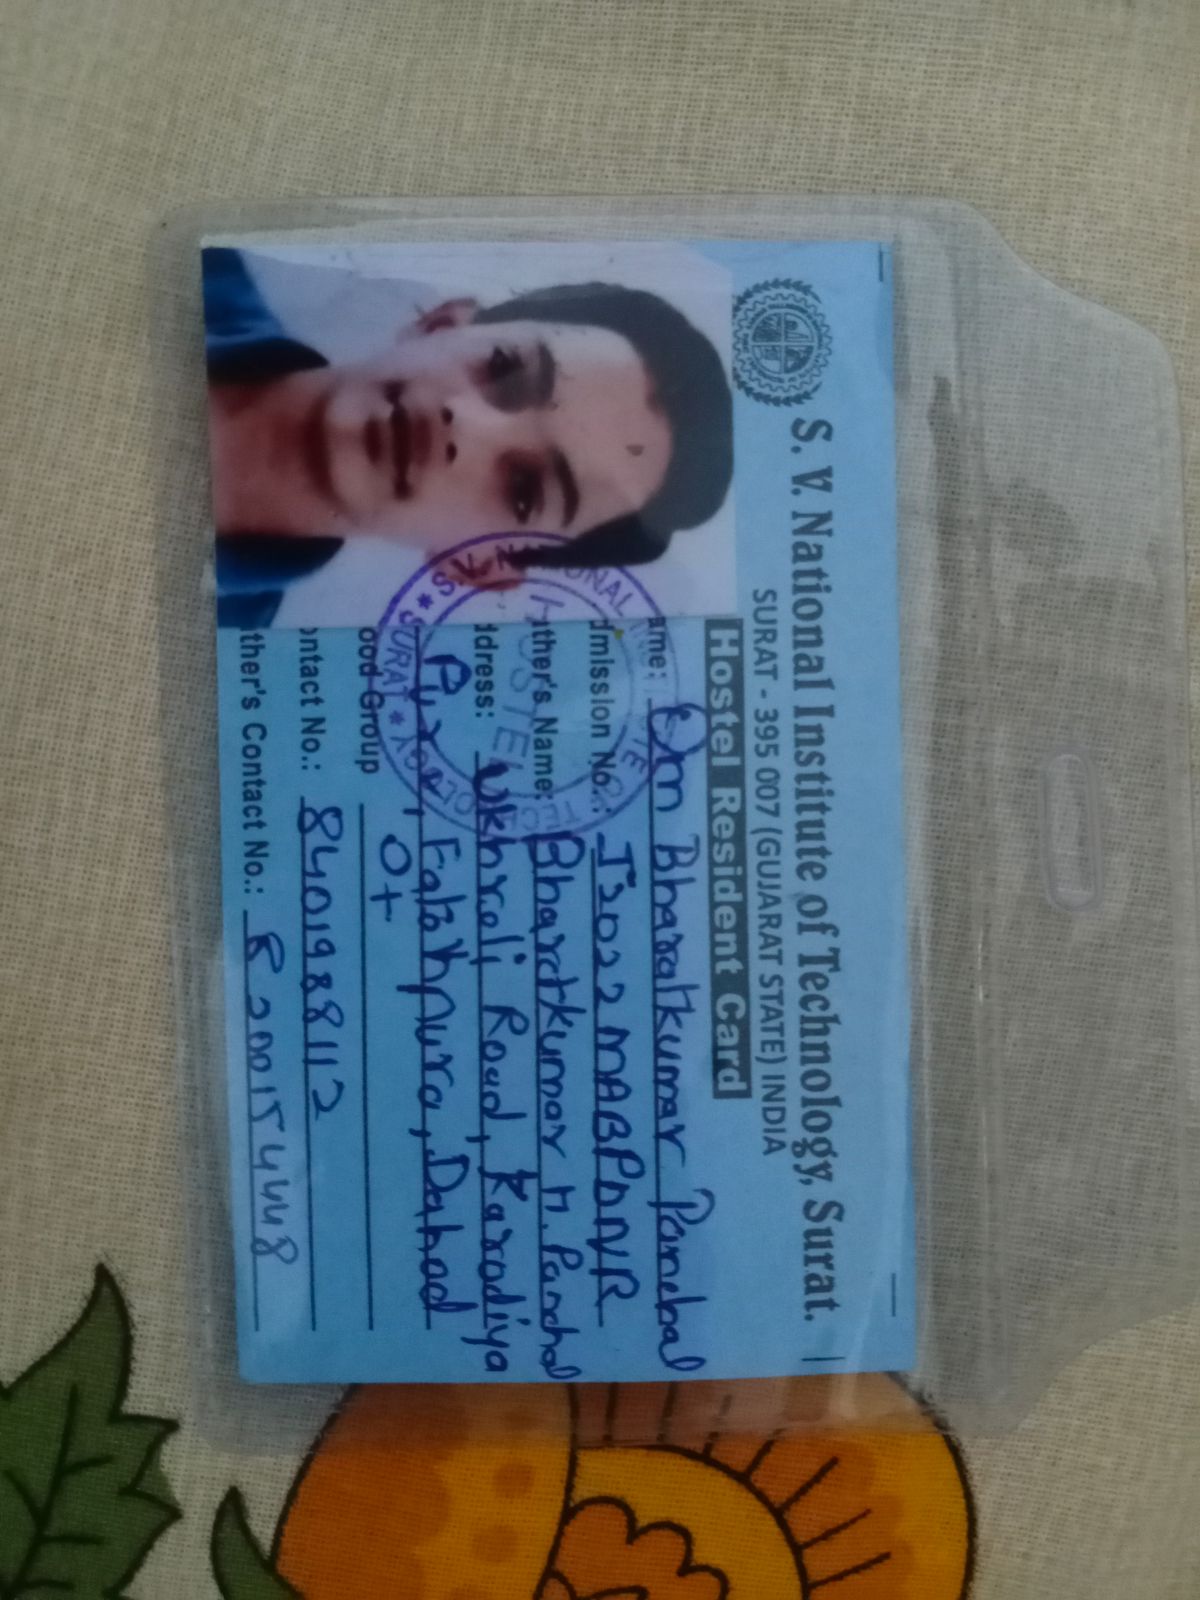 S. V. National Institute of Technology, Surat.
SURAT - 395 007 (GUJARAT STATE) INDIA
Hostel Resident Card
ame: Om Bharatkumar Panchal
dmission No.:
ther's Name: Bharatkumar M. Panchal
ddress: Ukhreli Road, Karodiya
Pura, Fatehpura, Dahod
ood Group O+
ontact No.: 8401988112
ther's Contact No.:
S.V. NATIONAL
HOSTEL
* SURAT *